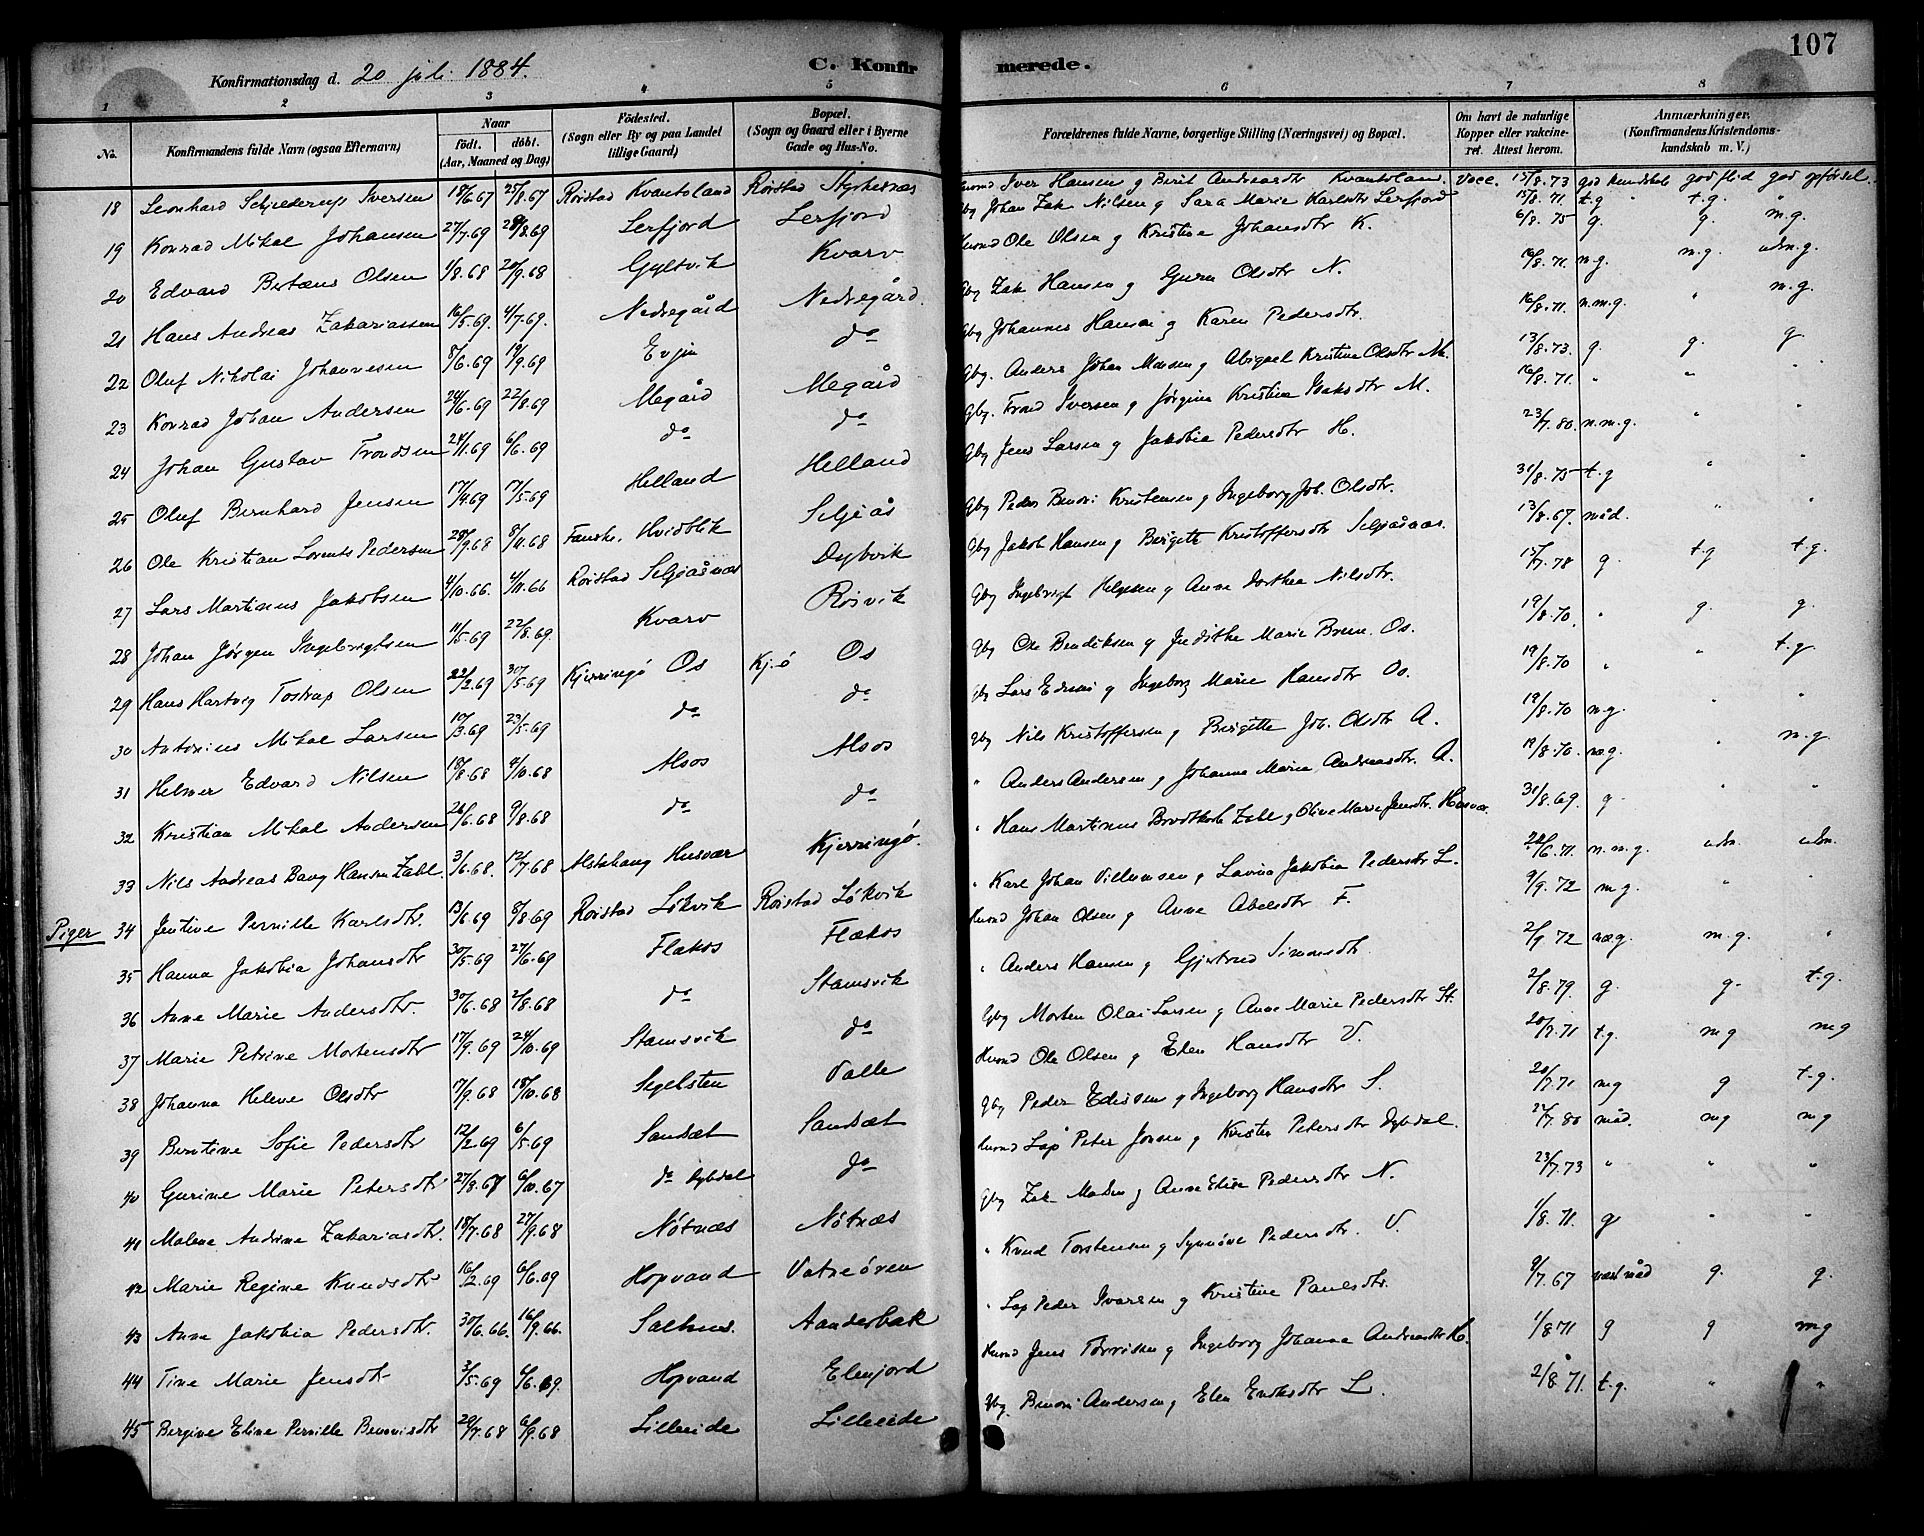 107
Konfirmationsdag d. 20 juli 1884.
C. Konfirmerede.
1 2 3 4 5 6 7 8
No. Konfirmandens fulde Navn (ogsaa Efternavn) Naar födt. döbt. (Aar, Maaned og Dag) Födested. (Sogn eller By og paa Landet tillige Gaard) Bopæl. (Sogn og Gaard eller i Byerne Gade og Hus-No. Forældrenes fulde Navne, borgerlige Stilling (Næringsvei) og Bopæl. Om havt de naturlige Kopper eller vakcineret. Attest herom. Anmærkninger. (Konfirmandens Kristendomskundskab m. V.)
18 Leonhard Schjelderup Iversen 18/6.67 25/8.67 Röistad Kvantoland Röistad Styrkesnæs Iver Hansen og Berit Andreasdtr Kvantoland. Vacc. 15/8.73 god kundskab god flid god opförsel.
19 Konrad Mikal Johansen 27/7.69 29/8.69 Lerfjord Lerfjord Gbg Johan Zak Nilsen og Sara Marie Karlsdtr Lerfjord 15/8.71. t.g " t.g. "
20 Edvard Bertæus Olsen 1/8.68 20/9.68 Gyltvik Kvarv Ole Olsen og Kristine Johansdtr K. 6/8.75 g. g m.g.
21 Hans Andreas Zakariassen 16/5.69. 4/7.69. Nedregård Nedregård. Gbg Zak Hansen og Guru Olsdtr N. 16/8.71. n.g. m.g. udm.g.
22 Oluf Nikolai Johannesen 8/6.69 19/9.69 Evjen do Gbg Johannes Hansen og Karen Pedersdtr. 16/8.71. n.m.g. " m.g.
23 Konrad Johan Andersen 24/6.69 22/8.69 Megård Megård Gbg. Anders Johan Monsen og Abigael Kristine Olsdtr M. 13/8.73. g. g. g
24 Johan Gustav Trondsen 24/1.69 6/6.69 do do Gbg. Trond Iversen og Jörgine Kristine Isaksdtr M. 16/8.71. " " "
25 Oluf Bernhard Jensen 17/4.69 17/5.69 Helland Helland Gbg Jens Larsen og Jakobia Pedersdtr H. 23/7.80. n.m.g. " "
26 Ole Kristian Lorents Pedersen 28/9.68 8/11.68 Fauske. Hvidblik Seljeås Gbg Peder Benoni Kristensen og Ingeborg Joh. Olsdtr. 31/8.75 t.g " "
27 Lars Martinus Jakobsen 4/10.66. 4/11.66 Röistad Seljeåsnæs Dybvik Gbg Jakob Hansen og Bergitte Kristoffersdtr Seljeåsnæs. 13/8.67. måd. " "
28 Johan Jörgen Ingebrigtsen 11/5.69 22/8.69. Kvarv Röivik Gbg Ingebrigt Helgesen og Anne Dorthea Nilsdtr. 15/7.78 g. t.g t.g.
29 Hans Hartvig Tostrup Olsen 22/2.69 30/5.69 Kjerringö Os Kj.ö Os Gbg Ole Bendiksen og Judithe Marie Os. 19/8.70. " g. g.
30 Antonius Mikal Larsen 10/3.69 23/5.69 do do Gbg Lars og Ingeborg Marie Hansdtr Os. 19/8.70 " " t.g.
31 Helmer Edvard Nilsen 18/8.68 4/10.68 Alsos Alsos Gbg Nils Kristoffersen og Bergitte Joh. Olsdtr A. 19/8.70 n.g. " "
32 Kristian Mikal Andersen 26/6.68 9/8.68 do do " Anders Andersen og Johanna Marie Andreasdtr. A. 19/8.70. næg. " m.g.
33 Nils Andreas Bang Hansen Zahl. 3/6.68. 12/7.68 Alstahaug Husvær Kjerringö. " Hans Martinus Brodtkorb Zahl og Oline Marie Jensdtr. Husvær. 31/8.69. g. " "
Piger 34 Jentine Pernille Karlsdtr. 13/6.69 8/8.69 Röistad Lökvik Röistad Lökvik " Karl Johan Villumsen og Lavina Jakobia Pedersdtr L. 22/6.71. n.m.g. udm. udm.
35 Hanna Jakobia Johansdtr 30/5.69 27/6.69 Flækos Flækos Johan Olsen og Anne Abelsdtr F. 9/9.72 m.g. " "
36 Anne Marie Andersdtr. 30/6.68 2/8.68 do Stamsvik " Anders Hansen og Gjertrud Simonsdtr 2/9.72 næg. m.g. "
37 Marie Petrine Mortensdtr 17/9.69 24/10.69 Stamsvik do Gbg Morten Olai Larsen og Anne Marie Pedersdtr St. 2/8.79. g. g. t.g.
38 Johanna Helene Olsdtr 17/9.68 18/10.68 Segelsten Valle Ole Olsen og Elen Hansdtr V. 20/7.71 t.g. m g m g
39 Bentine Sofie Pedersdtr 12/2.69 6/5.69 Sandsæt Sandsæt Gbg Peder og Ingeborg Hansdtr S. 20/7.71 mg g t.g.
40 Gurine Marie Petersdtr 27/8.67 6/10.67 do Dybdal do Lap Peter Jonsen og Kristen Petersdtr Dybdal. 24/7.80 måd. mg mg
41 Malene Andrine Zakariasdtr. 18/7.68 27/9.68 Nötnæs Nötnæs Gbg Zak. Madsen og Anne Elise Pedersdtr N. 23/7.73 " " "
42 Marie Regine Knudsdtr 16/2.69 6/6.69 Hopvand Vatneören " Knud Torstensen og Synnöve Pedersdtr. V. 1/8.71. g " "
43 Anne Jakobia Pedersdtr. 30/6.66. 16/9.66. Sælhus. Aanderbak " Lap Peder Ivarsen og Kristine Paulsdtr. 9/7.67 næst måd g. g.
44 Tine Marie Jensdtr 3/5.69 6/6.69. Hopvand Elvfjord Jens og Ingeborg Johanna Andreasdtr H. 1/8 71 g g mg
45 Bergine Eline Pernille Benonisdtr 29/7.68 6/9.68 Lilleeide Lilleeide Gbg. Benoni Andersen og Elen Endresdtr L. 2/8 71. t.g. " "